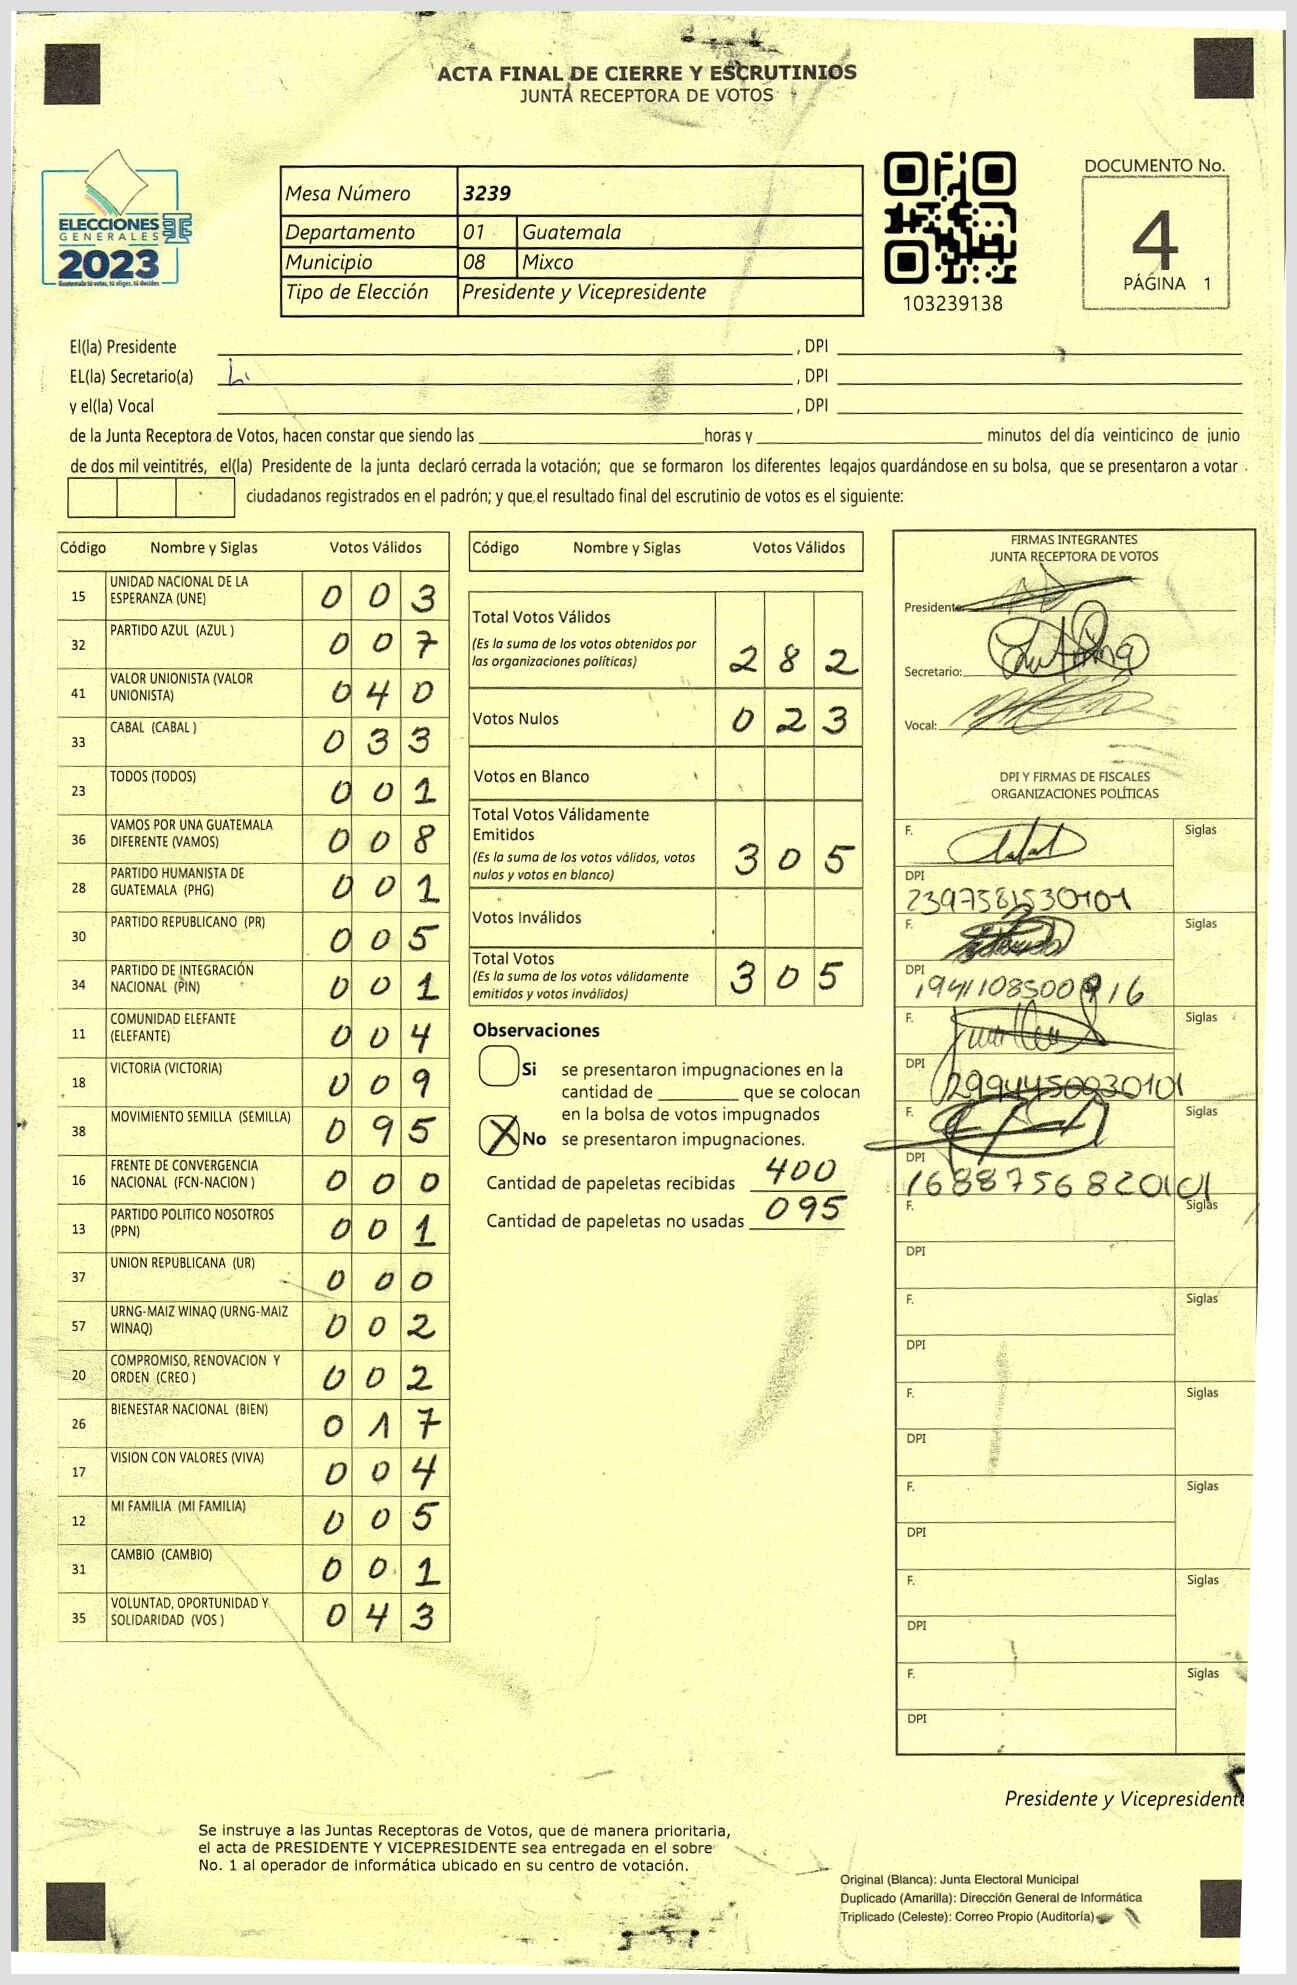 ACTA FINAL DE CIERRE Y ESCRUTINIOS
JUNTA RECEPTORA DE VOTOS
ELECCIONES
GENERALES
2023
Guatemala tú votas, tú eliges, tú decides
Mesa Número 3239
Departamento 01 Guatemala
Municipio 08 Mixco
Tipo de Elección Presidente y Vicepresidente
103239138
DOCUMENTO No.
4
PÁGINA 1
El(la) Presidente , DPI
EL(la) Secretario(a) , DPI
y el(la) Vocal , DPI
de la Junta Receptora de Votos, hacen constar que siendo las horas y minutos del día veinticinco de junio
de dos mil veintitrés, el(la) Presidente de la junta declaró cerrada la votación; que se formaron los diferentes legajos guardándose en su bolsa, que se presentaron a votar
ciudadanos registrados en el padrón; y que el resultado final del escrutinio de votos es el siguiente:
Código Nombre y Siglas Votos Válidos
15 UNIDAD NACIONAL DE LA ESPERANZA (UNE) 0 0 3
32 PARTIDO AZUL (AZUL ) 0 0 7
41 VALOR UNIONISTA (VALOR UNIONISTA) 0 4 0
33 CABAL (CABAL ) 0 3 3
23 TODOS (TODOS) 0 0 1
36 VAMOS POR UNA GUATEMALA DIFERENTE (VAMOS) 0 0 8
28 PARTIDO HUMANISTA DE GUATEMALA (PHG) 0 0 1
30 PARTIDO REPUBLICANO (PR) 0 0 5
34 PARTIDO DE INTEGRACIÓN NACIONAL (PIN) 0 0 1
11 COMUNIDAD ELEFANTE (ELEFANTE) 0 0 4
18 VICTORIA (VICTORIA) 0 0 9
38 MOVIMIENTO SEMILLA (SEMILLA) 0 9 5
16 FRENTE DE CONVERGENCIA NACIONAL (FCN-NACION ) 0 0 0
13 PARTIDO POLITICO NOSOTROS (PPN) 0 0 1
37 UNION REPUBLICANA (UR) 0 0 0
57 URNG-MAIZ WINAQ (URNG-MAIZ WINAQ) 0 0 2
20 COMPROMISO, RENOVACION Y ORDEN (CREO ) 0 0 2
26 BIENESTAR NACIONAL (BIEN) 0 1 7
17 VISION CON VALORES (VIVA) 0 0 4
12 MI FAMILIA (MI FAMILIA) 0 0 5
31 CAMBIO (CAMBIO) 0 0 1
35 VOLUNTAD, OPORTUNIDAD Y SOLIDARIDAD (VOS ) 0 4 3
Código Nombre y Siglas Votos Válidos
Total Votos Válidos
(Es la suma de los votos obtenidos por
las organizaciones políticas) 2 8 2
Votos Nulos 0 2 3
Votos en Blanco
Total Votos Válidamente
Emitidos
(Es la suma de los votos válidos, votos
nulos y votos en blanco) 3 0 5
Votos Inválidos
Total Votos
(Es la suma de los votos válidamente
emitidos y votos inválidos) 3 0 5
Observaciones
Si se presentaron impugnaciones en la
cantidad de que se colocan
en la bolsa de votos impugnados
X No se presentaron impugnaciones.
Cantidad de papeletas recibidas 400
Cantidad de papeletas no usadas 095
FIRMAS INTEGRANTES
JUNTA RECEPTORA DE VOTOS
Presidente:
Secretario:
Vocal:
DPI Y FIRMAS DE FISCALES
ORGANIZACIONES POLÍTICAS
F. Siglas
DPI 2397581530101
F. Siglas
DPI
F. Siglas
DPI 2994450030101
F. Siglas
DPI 1688756820101
F. Siglas
DPI
F. Siglas
DPI
F. Siglas
DPI
F. Siglas
DPI
F. Siglas
DPI
F. Siglas
DPI
Presidente y Vicepresidente
Se instruye a las Juntas Receptoras de Votos, que de manera prioritaria,
el acta de PRESIDENTE Y VICEPRESIDENTE sea entregada en el sobre
No. 1 al operador de informática ubicado en su centro de votación.
Original (Blanca): Junta Electoral Municipal
Duplicado (Amarilla): Dirección General de Informática
Triplicado (Celeste): Correo Propio (Auditoría)